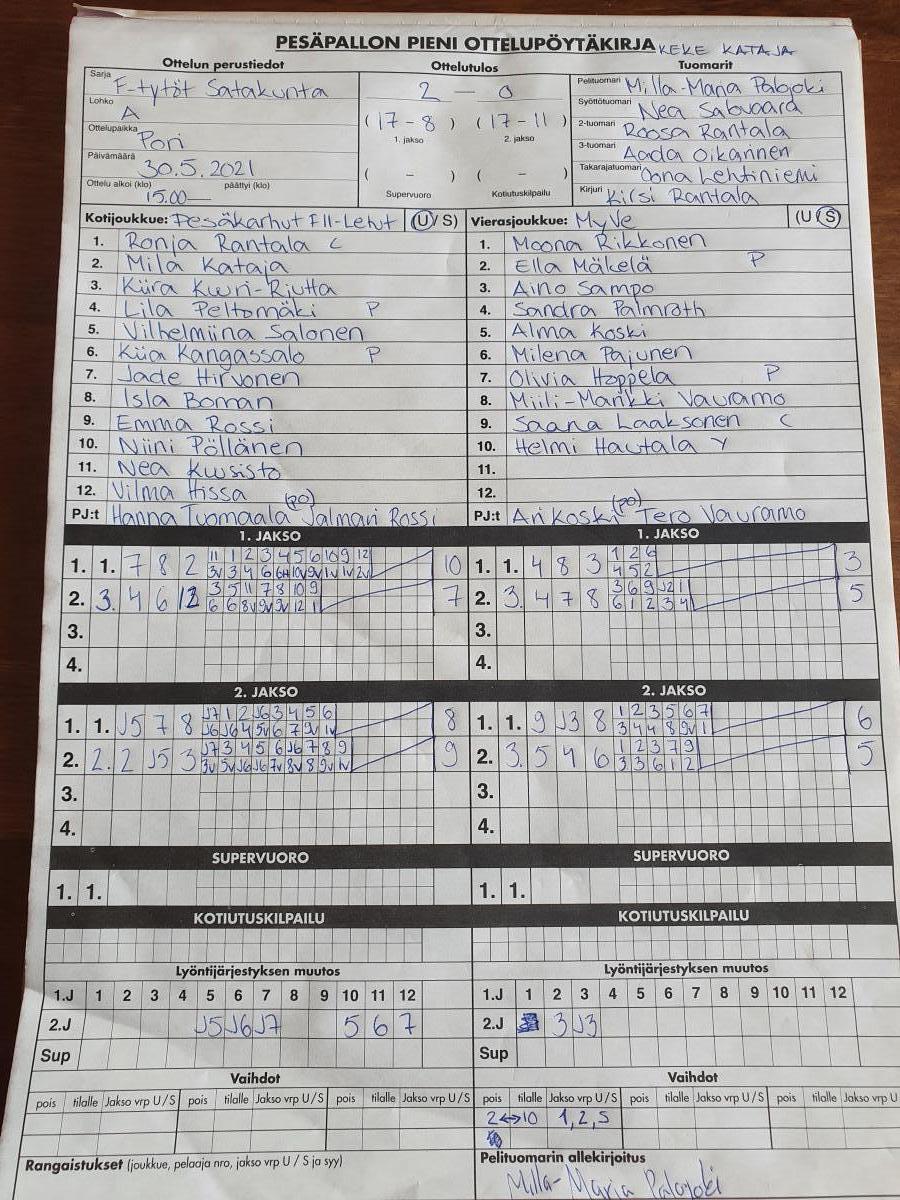 PESÄPALLON PIENI OTTELUPÖYTÄKIRJA KEKE KATAJA
Ottelun perustiedot Ottelutulos Tuomarit
Sarja F-tytöt Satakunta
Lohko A
Ottelupaikka Pori
Päivämäärä 30.5.2021
Ottelu alkoi (klo) 15.00 päättyi (klo) —
2 — 0
(17-8) (17-11)
1. jakso 2. jakso
( - ) ( - )
Supervuoro Kotiutuskilpailu
Pelituomari Milla-Maria Palojoki
Syöttötuomari Nea
2-tuomari Roosa Rantala
3-tuomari Aada Oikarinen
Takarajatuomari Oona Lehtiniemi
Kirjuri Kirsi Rantala
Kotijoukkue: Pesäkarhut FII-Lehut (U/S)
1. Ronja Rantala C
2. Mila Kataja
3. Kiira Kuuri-Riutta
4. Lila Peltomäki P
5. Vilhelmiina Salonen
6. Kiia Kangassalo P
7. Jade Hirvonen
8. Isla Boman
9. Emma Rossi
10. Niini Pöllänen
11. Nea Kuusisto
12. Vilma Hissa
PJ:t Hanna Tuomaala (PO) Jalmari Rossi
Vierasjoukkue: MyVe (U/S)
1. Moona Rikkonen
2. Ella Mäkelä P
3. Aino Sampo
4. Sandra Palmroth
5. Alma Koski
6. Milena Pajunen
7. Olivia Hoppela P
8. Miili-Markki Vauramo
9. Saana Laaksonen C
10. Helmi Hautala Y
11.
12.
PJ:t Ari Koski (PO) Tero Vauramo
1. JAKSO
1. 1. 7 8 2 11 1 2 3 4 5 6 10 9 12 10
2. 3. 4 6 12 3 5 11 7 8 10 9 7
6 6 8v 9v 9v 12 1
3.
4.
1. JAKSO
1. 1. 4 8 3 1 2 6 3
4 5 2
2. 3. 4 7 8 3 6 9 J2 1 5
6 1 2 3 4
3.
4.
2. JAKSO
1. 1. J5 7 8 J7 1 2 J6 3 4 5 6 8
J6 J6 4 5v 6 7 9v 1v
2. 2. 2 J5 3 J7 3 4 5 6 J6 7 8 9 9
3v 5v J6 J6 7v 8v 8 9v 1v
3.
4.
2. JAKSO
1. 1. 9 J3 8 1 2 3 5 6 7 6
3 4 4 8 9v 1
2. 3. 5 4 6 1 2 3 7 9 5
3 3 6 1 2
3.
4.
SUPERVUORO
1. 1.
SUPERVUORO
1. 1.
KOTIUTUSKILPAILU
KOTIUTUSKILPAILU
Lyöntijärjestyksen muutos
1.J 1 2 3 4 5 6 7 8 9 10 11 12
2.J J5 J6 J7 5 6 7
Sup
Lyöntijärjestyksen muutos
1.J 1 2 3 4 5 6 7 8 9 10 11 12
2.J 3 J3
Sup
Vaihdot
pois tilalle Jakso vrp U / S pois tilalle Jakso vrp U / S pois tilalle Jakso vrp U / S
Vaihdot
pois tilalle Jakso vrp U / S pois tilalle Jakso vrp U / S pois tilalle Jakso vrp U
2↔10 1,2,S
Rangaistukset (joukkue, pelaaja nro, jakso vrp U / S ja syy)
Pelituomarin allekirjoitus
Milla-Maria Palojoki